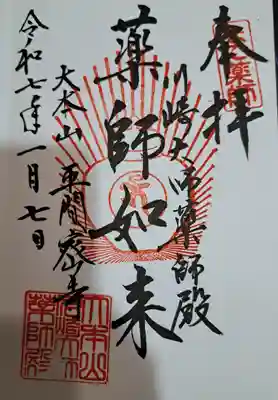 奉拝
川崎大師薬師殿
薬師如来
大本山 平間寺
令和七年一月七日
大本山
川崎大師
薬師殿